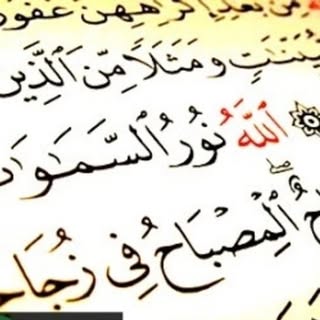 مِنۢ بَعْدِ إِكْرَٰهِهِنَّ غَفُورٌ
وَمَثَلًا مِّنَ ٱلَّذِينَ
ٱللَّهُ نُورُ ٱلسَّمَٰوَٰتِ
ٱلْمِصْبَاحُ فِى